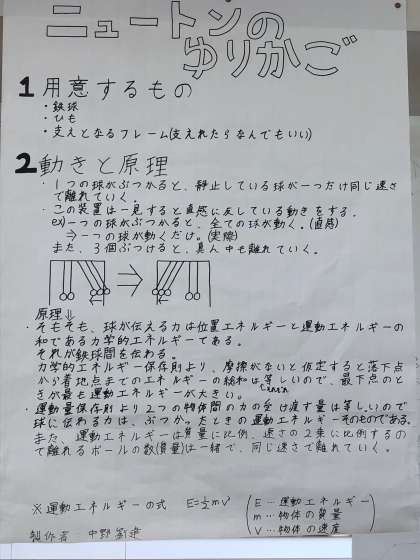 ニュートンの
ゆりかご
1 用意するもの
・鉄球
・ひも
・支えとなるフレーム(支えれたらなんでもいい)
2 動きと原理
・1つの球がぶつかると、静止している球が一つだけ同じ速さ
で離れていく。
・この装置は一見すると直感に反している動きをする。
ex)一つの球がぶつかると、全ての球が動く。(直感)
⇒一つの球が動くだけ。(実際)
また、3個ぶつけると、真ん中も離れていく。
原理⇓
・そもそも、球が伝える力は位置エネルギーと運動エネルギーの
和である力学的エネルギーである。
それが鉄球間を伝わる。
力学的エネルギー保存則より、摩擦がないと仮定すると落下点
から着地点までのエネルギーの総和は等しいので、最下点のと
きが最も運動エネルギーが大きい。
・運動量保存則より2つの物体間の力の受け渡す量は等しいので
球に伝わる力は、ぶつかったときの運動エネルギーそのものである。
また、運動エネルギーは質量に比例、速さの2乗に比例するの
で離れるボールの数(質量)は一緒で、同じ速さで離れていく。
※運動エネルギーの式 E=½mv²
E…運動エネルギー
m…物体の質量
V…物体の速度
製作者 中野